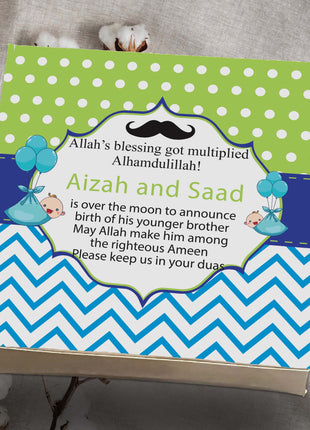 Allah's blessing got multiplied
Alhamdulillah!
Aizah and Saad
is over the moon to announce
birth of his younger brother
May Allah make him among
the righteous Ameen
Please keep us in your duas